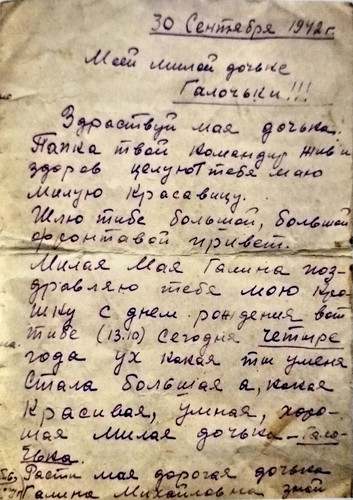 30 Сентября 1942г.
Моей милой дочьке
Галочьки!!!
Здраствуй мая дочька.
Папка твой командир жив и
здоров целуют тебя маю
милую красавицу.
Шлю тибе большой, большой
фронтавой привет.
Милая Мая Галина поз-
дравляю тебя мою кро-
шку с днем рождения вот
тибе (13.10) сегодня четыре
года ух какая ты уменя
стала большая а, какая
красивая, умная, хоро-
шая милая дочька – Гала-
чька.
Расти мая дорогая дочька
Галина Михайловна знай